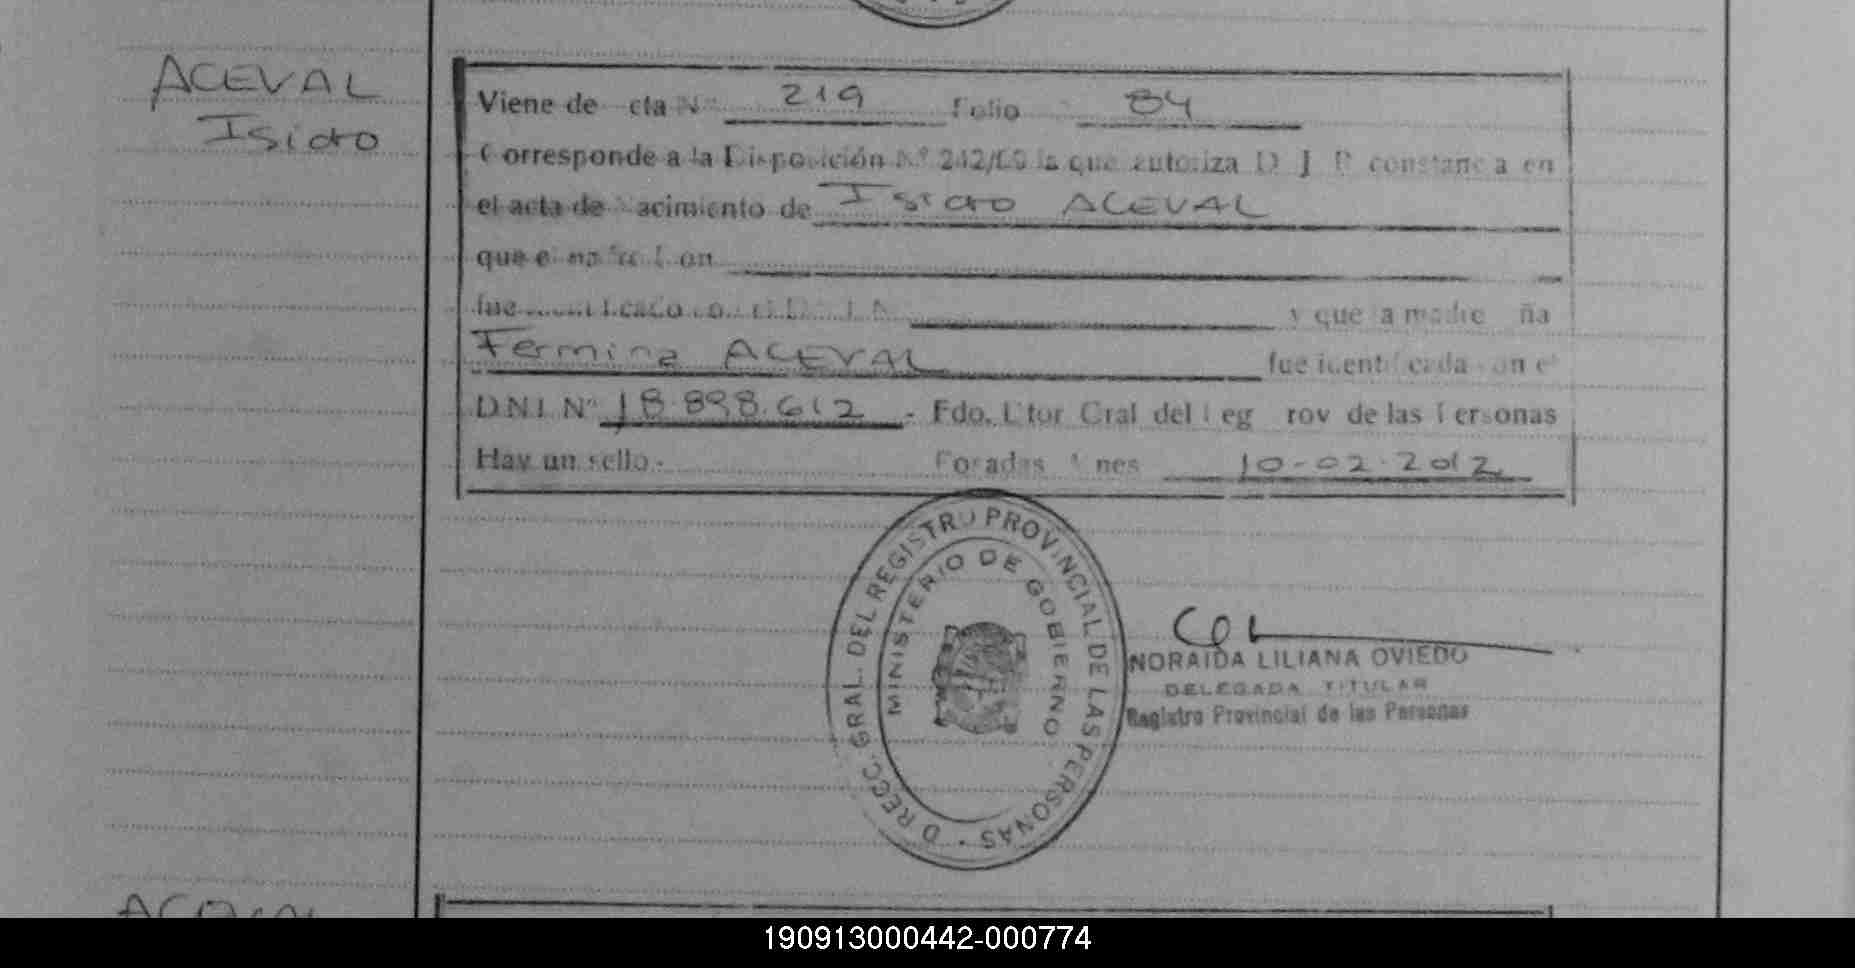 ACEVAL
Isidro
Viene de cta Nº 219 Folio 84
Corresponde a la Disposición Nº 242/ la que autoriza D J P constancia en
el acta de Nacimiento de Isidro ACEVAL
que el
fue y que la madre ña
Fermina ACEVAL fue identificada con el
DNI Nº 18.898.612.- Fdo. Dtor Gral del Reg rov de las Personas
Hay un sello.- Posadas Mnes 10-02-2012
DIRECC. GRAL. DEL REGISTRO PROVINCIAL DE LAS PERSONAS
MINISTERIO DE GOBIERNO
NORAIDA LILIANA OVIEDO
DELEGADA TITULAR
Registro Provincial de las Personas
190913000442-000774